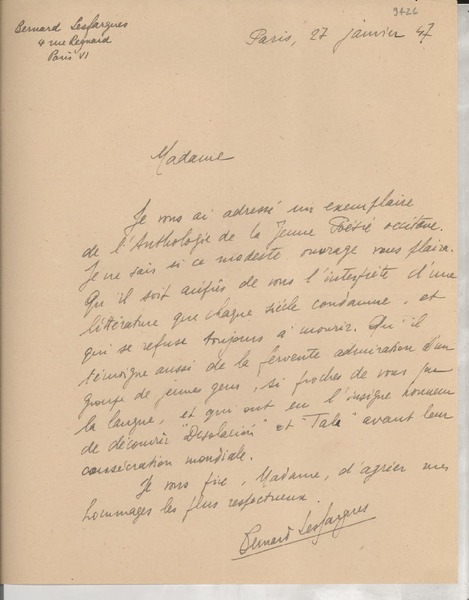 Bernard Lesfargues
4 rue Regnard
Paris VI
9426
Paris, 27 janvier 47
Madame
Je vous ai adressé un exemplaire
de l'Anthologie de la Jeune Poésie occitane.
Je ne sais si ce modeste ouvrage vous plaira.
Qu'il soit auprès de vous l'interprète d'une
littérature que chaque siècle condamne, et
qui se refuse toujours à mourir. Qu'il
témoigne aussi de la fervente admiration d'un
groupe de jeunes gens, si proches de vous par
la langue, et qui ont eu l'insigne honneur
de découvrir "Desolación" et "Tala" avant leur
consécration mondiale.
Je vous prie, Madame, d'agréer mes
hommages les plus respectueux.
Bernard Lesfargues